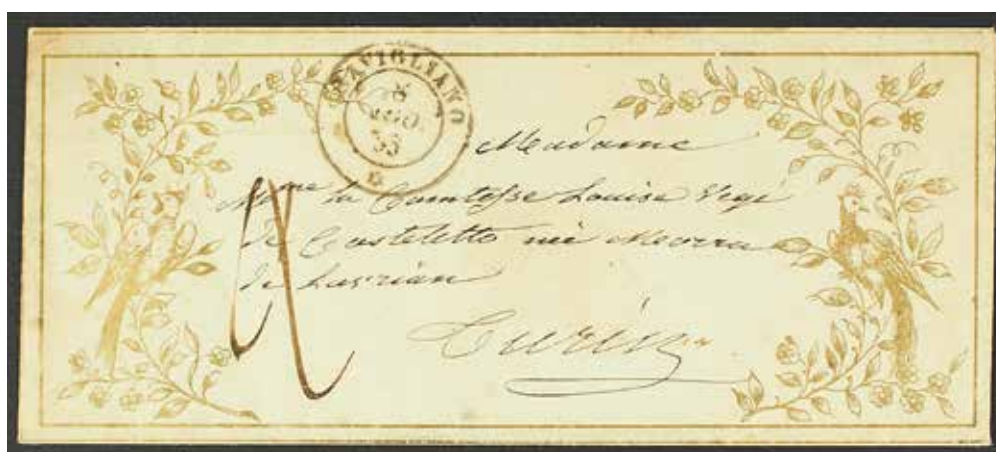 SAVIGLIANO
8
AGO.
55
Madame
Mme la Comtesse Louise
de Casteletto née Morra
de Lavrian
Turin